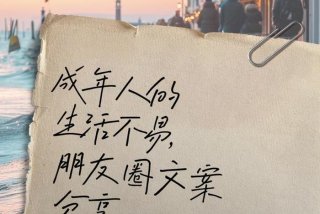 成年人的
生活不易,
朋友圈文案
分享